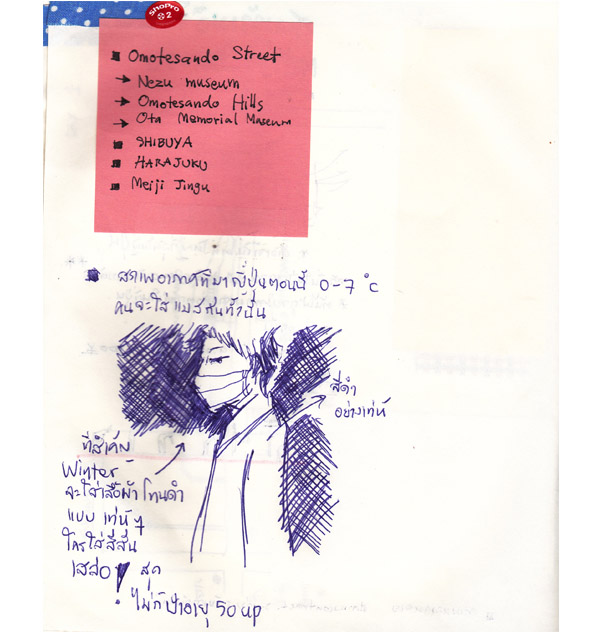 ShoPro
2
Omotesando Street
→ Nezu museum
→ Omotesando Hills
→ Ota Memorial Museum
SHIBUYA
HARAJUKU
Meiji Jingu
สภาพอากาศที่มาญี่ปุ่นตอนนี้ 0-7 °c
คนจะใส่แมสกันทั้งนั้น
สีดำ
อย่างเท่ห์
ที่สำคัญ
Winter
จะใส่เสื้อผ้าโทนดำ
แบบ เท่ห์ๆ
ใครใส่สีสัน
เสล่อ สุด
! ไม่ก็ป้าอายุ 50 up